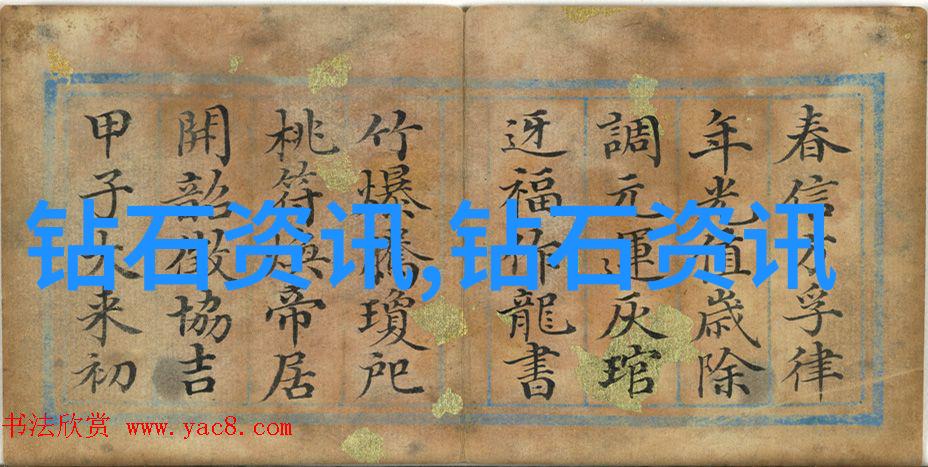 春信孚律
年光值歲除
調元運灰琯
迓福龍書
竹爆瓊戺
桃符煥帝居
開韶徵協吉
甲子大来初
钻石资讯,钻石资讯
书法欣赏 www.yac8.com